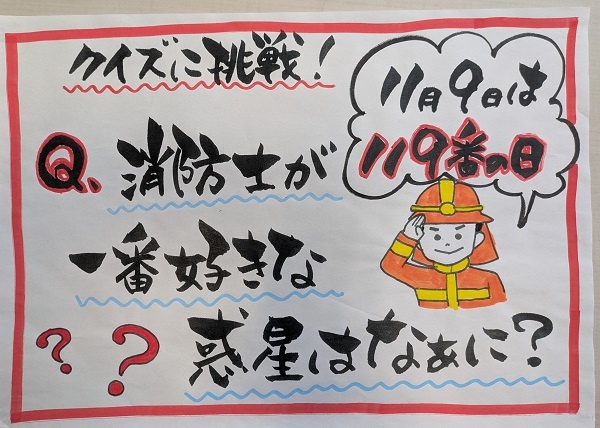 クイズに挑戦!
11月9日は
119番の日
Q、消防士が
一番好きな
??惑星はなぁに?